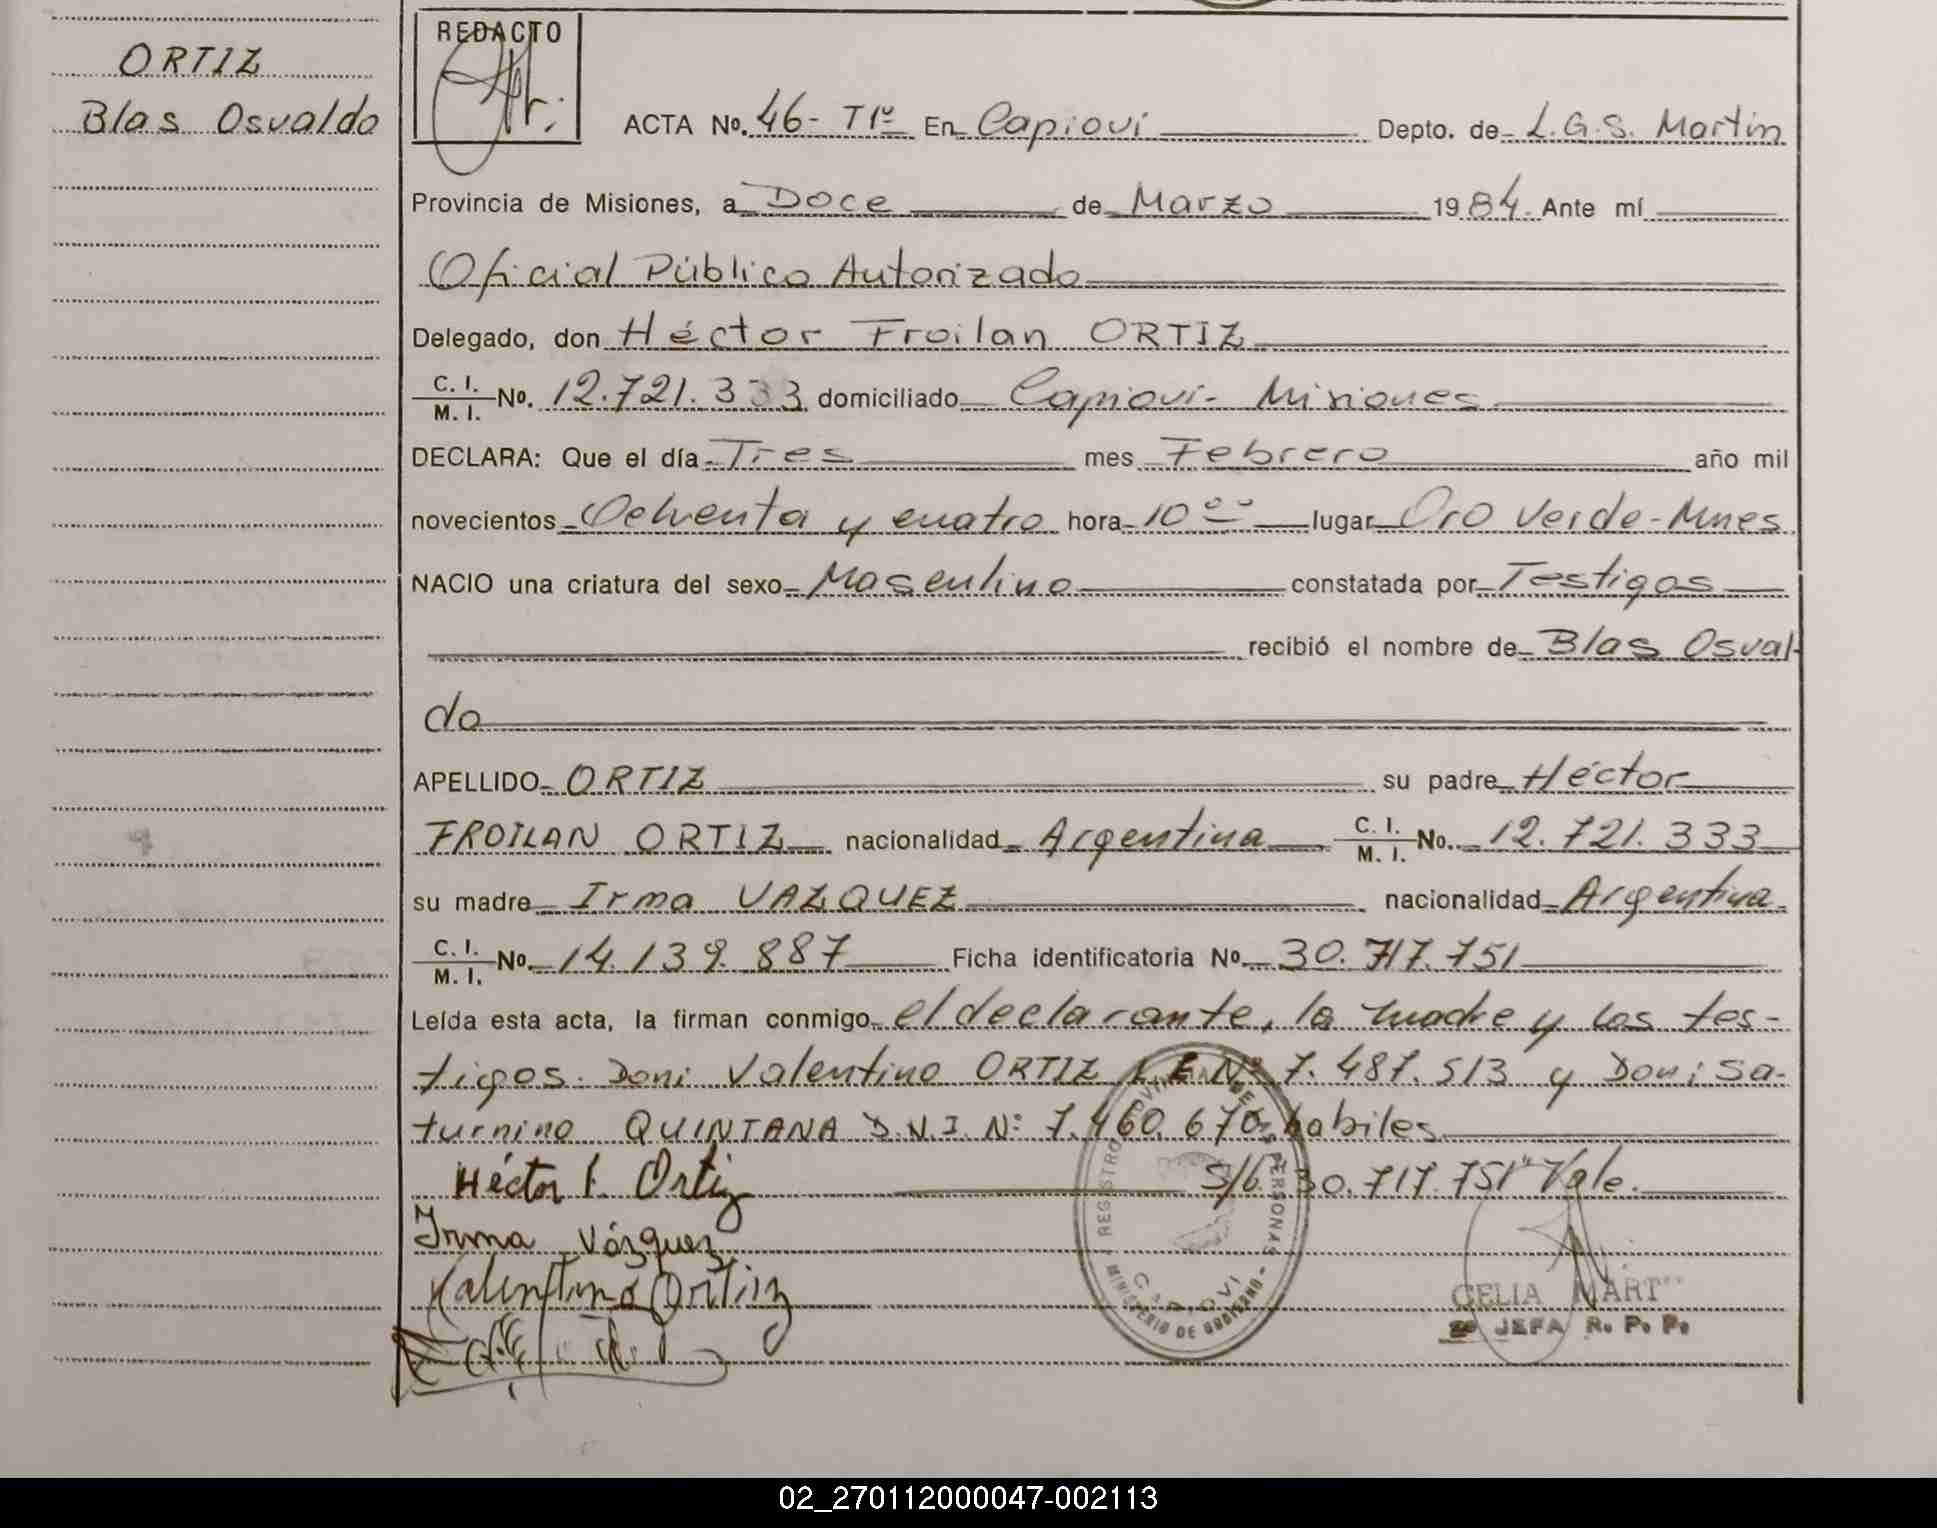 ORTIZ
Blas Osvaldo
REDACTO
ACTA Nº. 46- T1º En Capioví Depto. de L.G.S. Martín
Provincia de Misiones, a Doce de Marzo 1984. Ante mí
Oficial Público Autorizado
Delegado, don Héctor Froilan ORTIZ
C. I. M. I. Nº. 12.721.333 domiciliado Capioví- Misiones
DECLARA: Que el día Tres mes Febrero año mil
novecientos Ochenta y cuatro hora 10ºº lugar Oro Verde-Mnes
NACIO una criatura del sexo Masculino constatada por Testigos
recibió el nombre de Blas Osval-
do
APELLIDO ORTIZ su padre Héctor
FROILAN ORTIZ nacionalidad Argentina C. I. M. I. No. 12.721.333
su madre Irma VAZQUEZ nacionalidad Argentina
C. I. M. I. Nº 14.139.887 Ficha identificatoria Nº 30.717.751
Leída esta acta, la firman conmigo el declarante, la madre y los tes-
tigos. Don: Valentino ORTIZ L.E.Nº 7.487.513 y Don: Sa-
turnino QUINTANA D.N.I. Nº 7.460.670 habiles
S/b. 30.717.751" Vale.
Héctor F. Ortiz
Irma Vázquez
Valentino Ortiz
REGISTRO PROVINCIAL DE LAS PERSONAS
CAPIOVI
MINISTERIO DE GOBIERNO
CELIA MART
JEFA R. P. P.
02_270112000047-002113